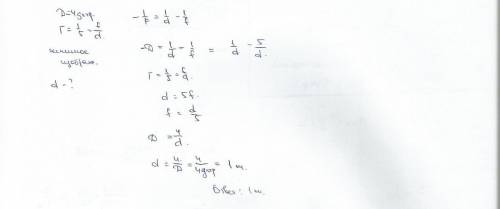 D=4дптр.
Г = 1/5 = f/d.
мнимое
изображ.
d - ?
-1/F = 1/d - 1/f
-D = 1/d - 1/f = 1/d - 5/d
Г = 1/5 = f/d.
d = 5f.
f = d/5
D = 4/d.
d = 4/D = 4/4дптр = 1 м.
Ответ: 1 м.